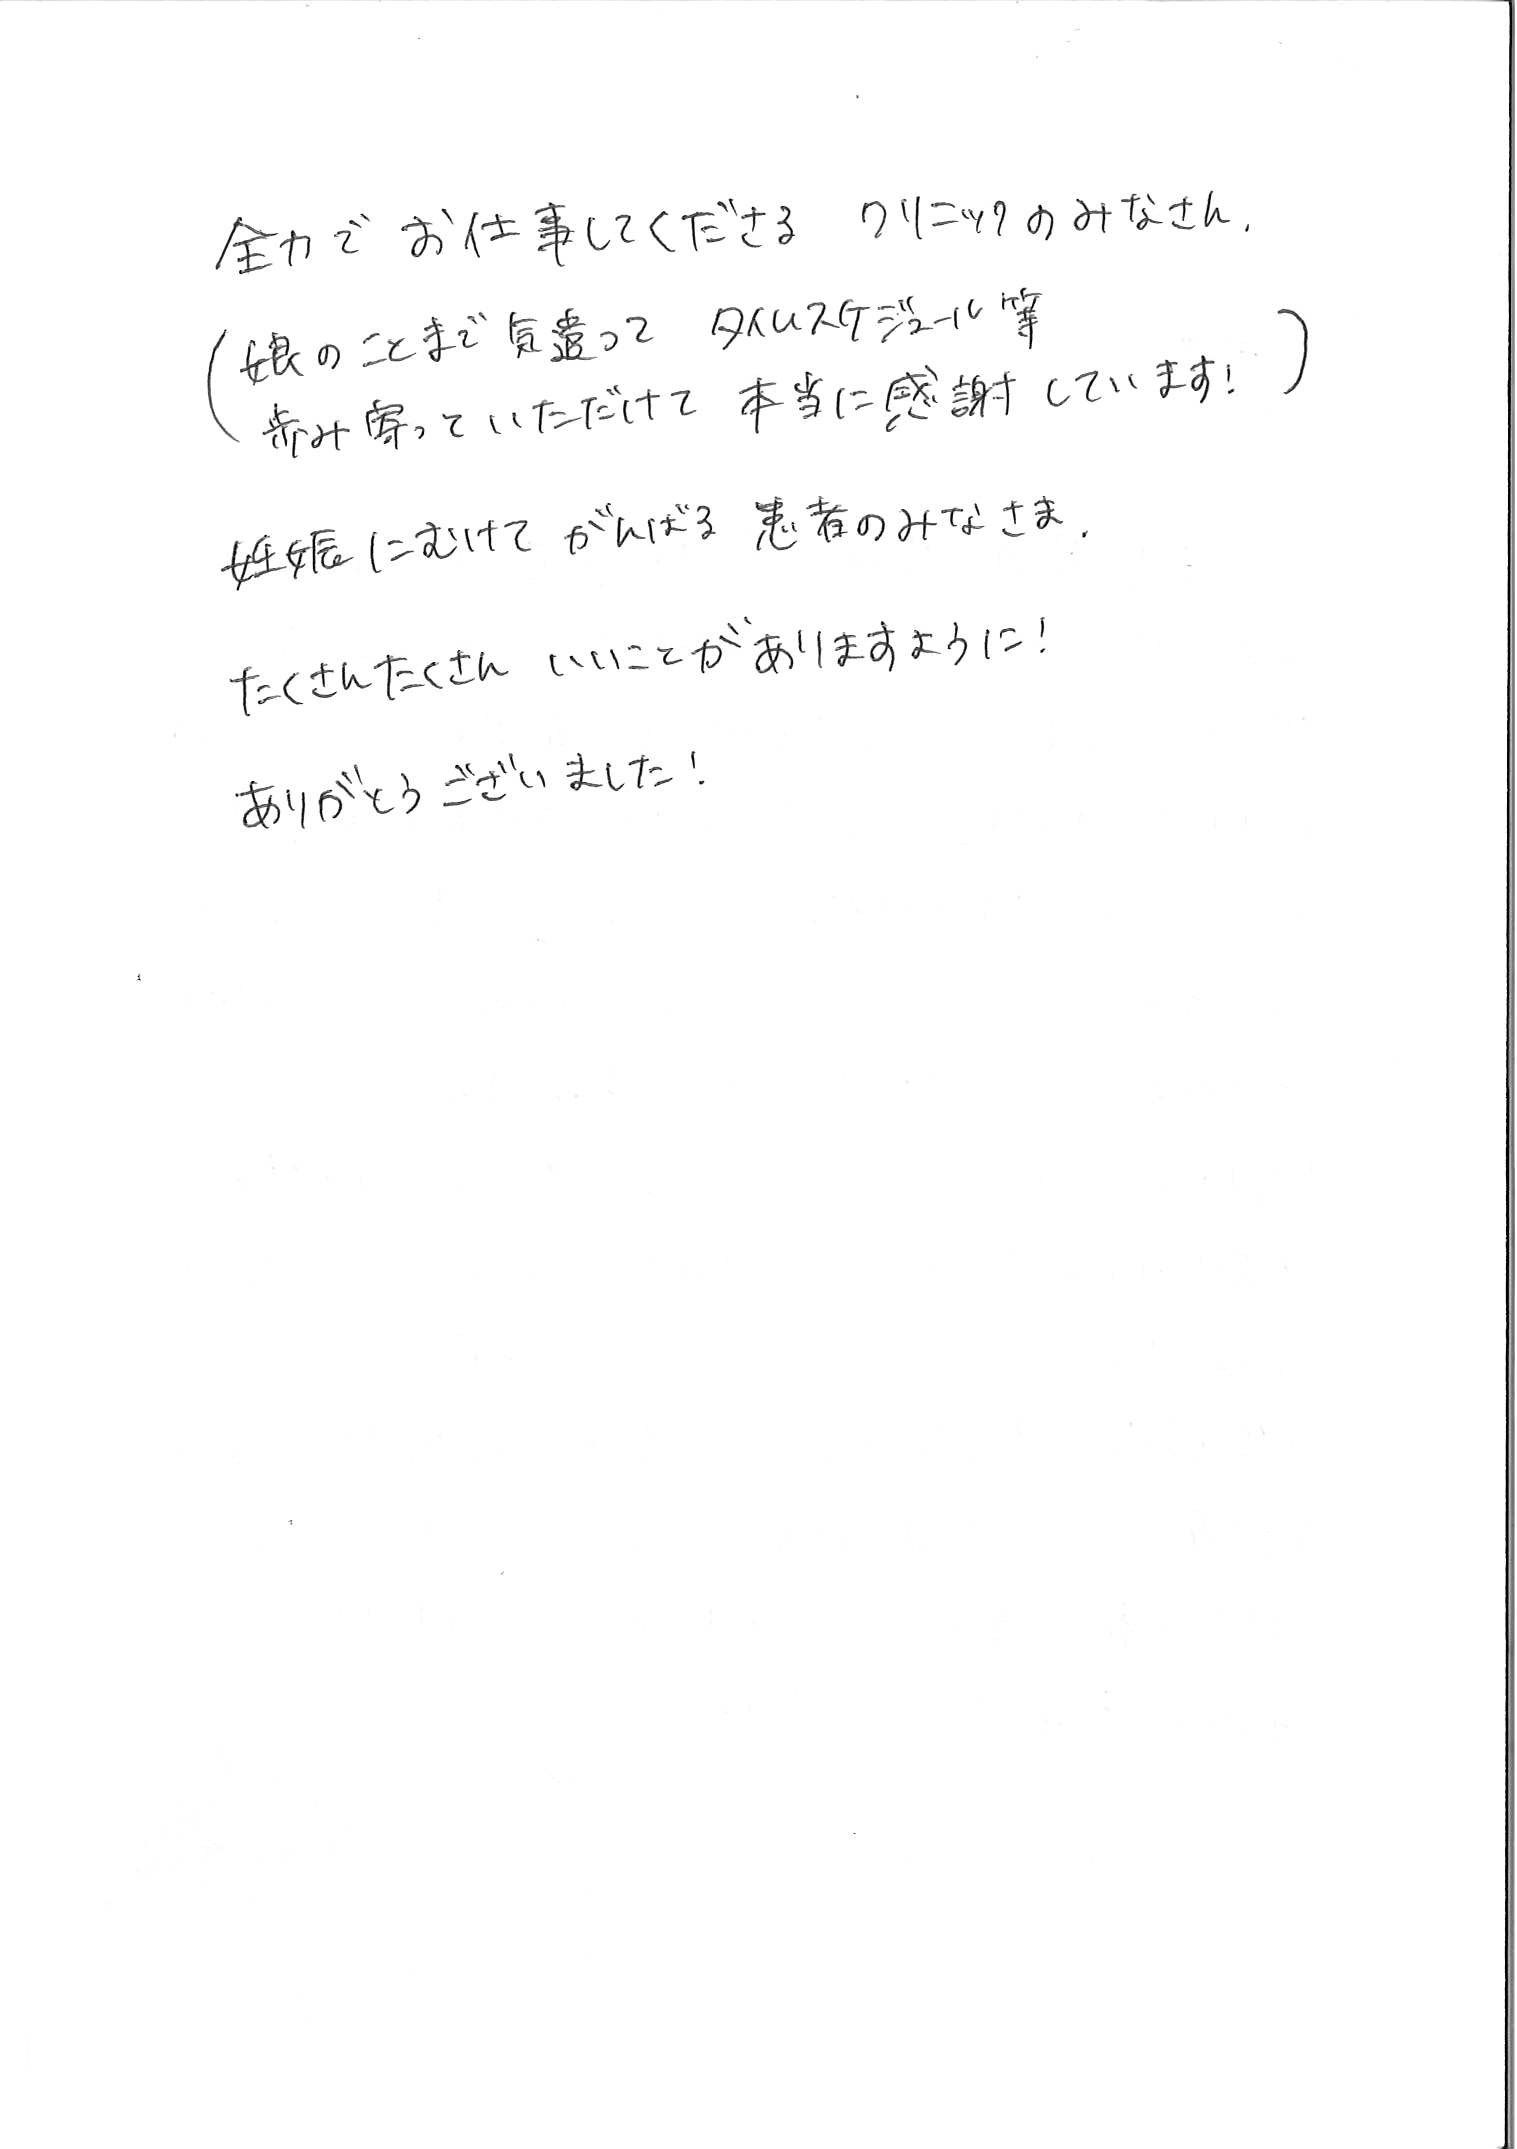 全力で お仕事してくださる クリニックのみなさん、
(娘のことまで気遣って タイムスケジュール等
歩み寄っていただけて 本当に感謝しています!)
妊娠にむけて がんばる 患者のみなさま、
たくさんたくさん いいことがありますように!
ありがとうございました!